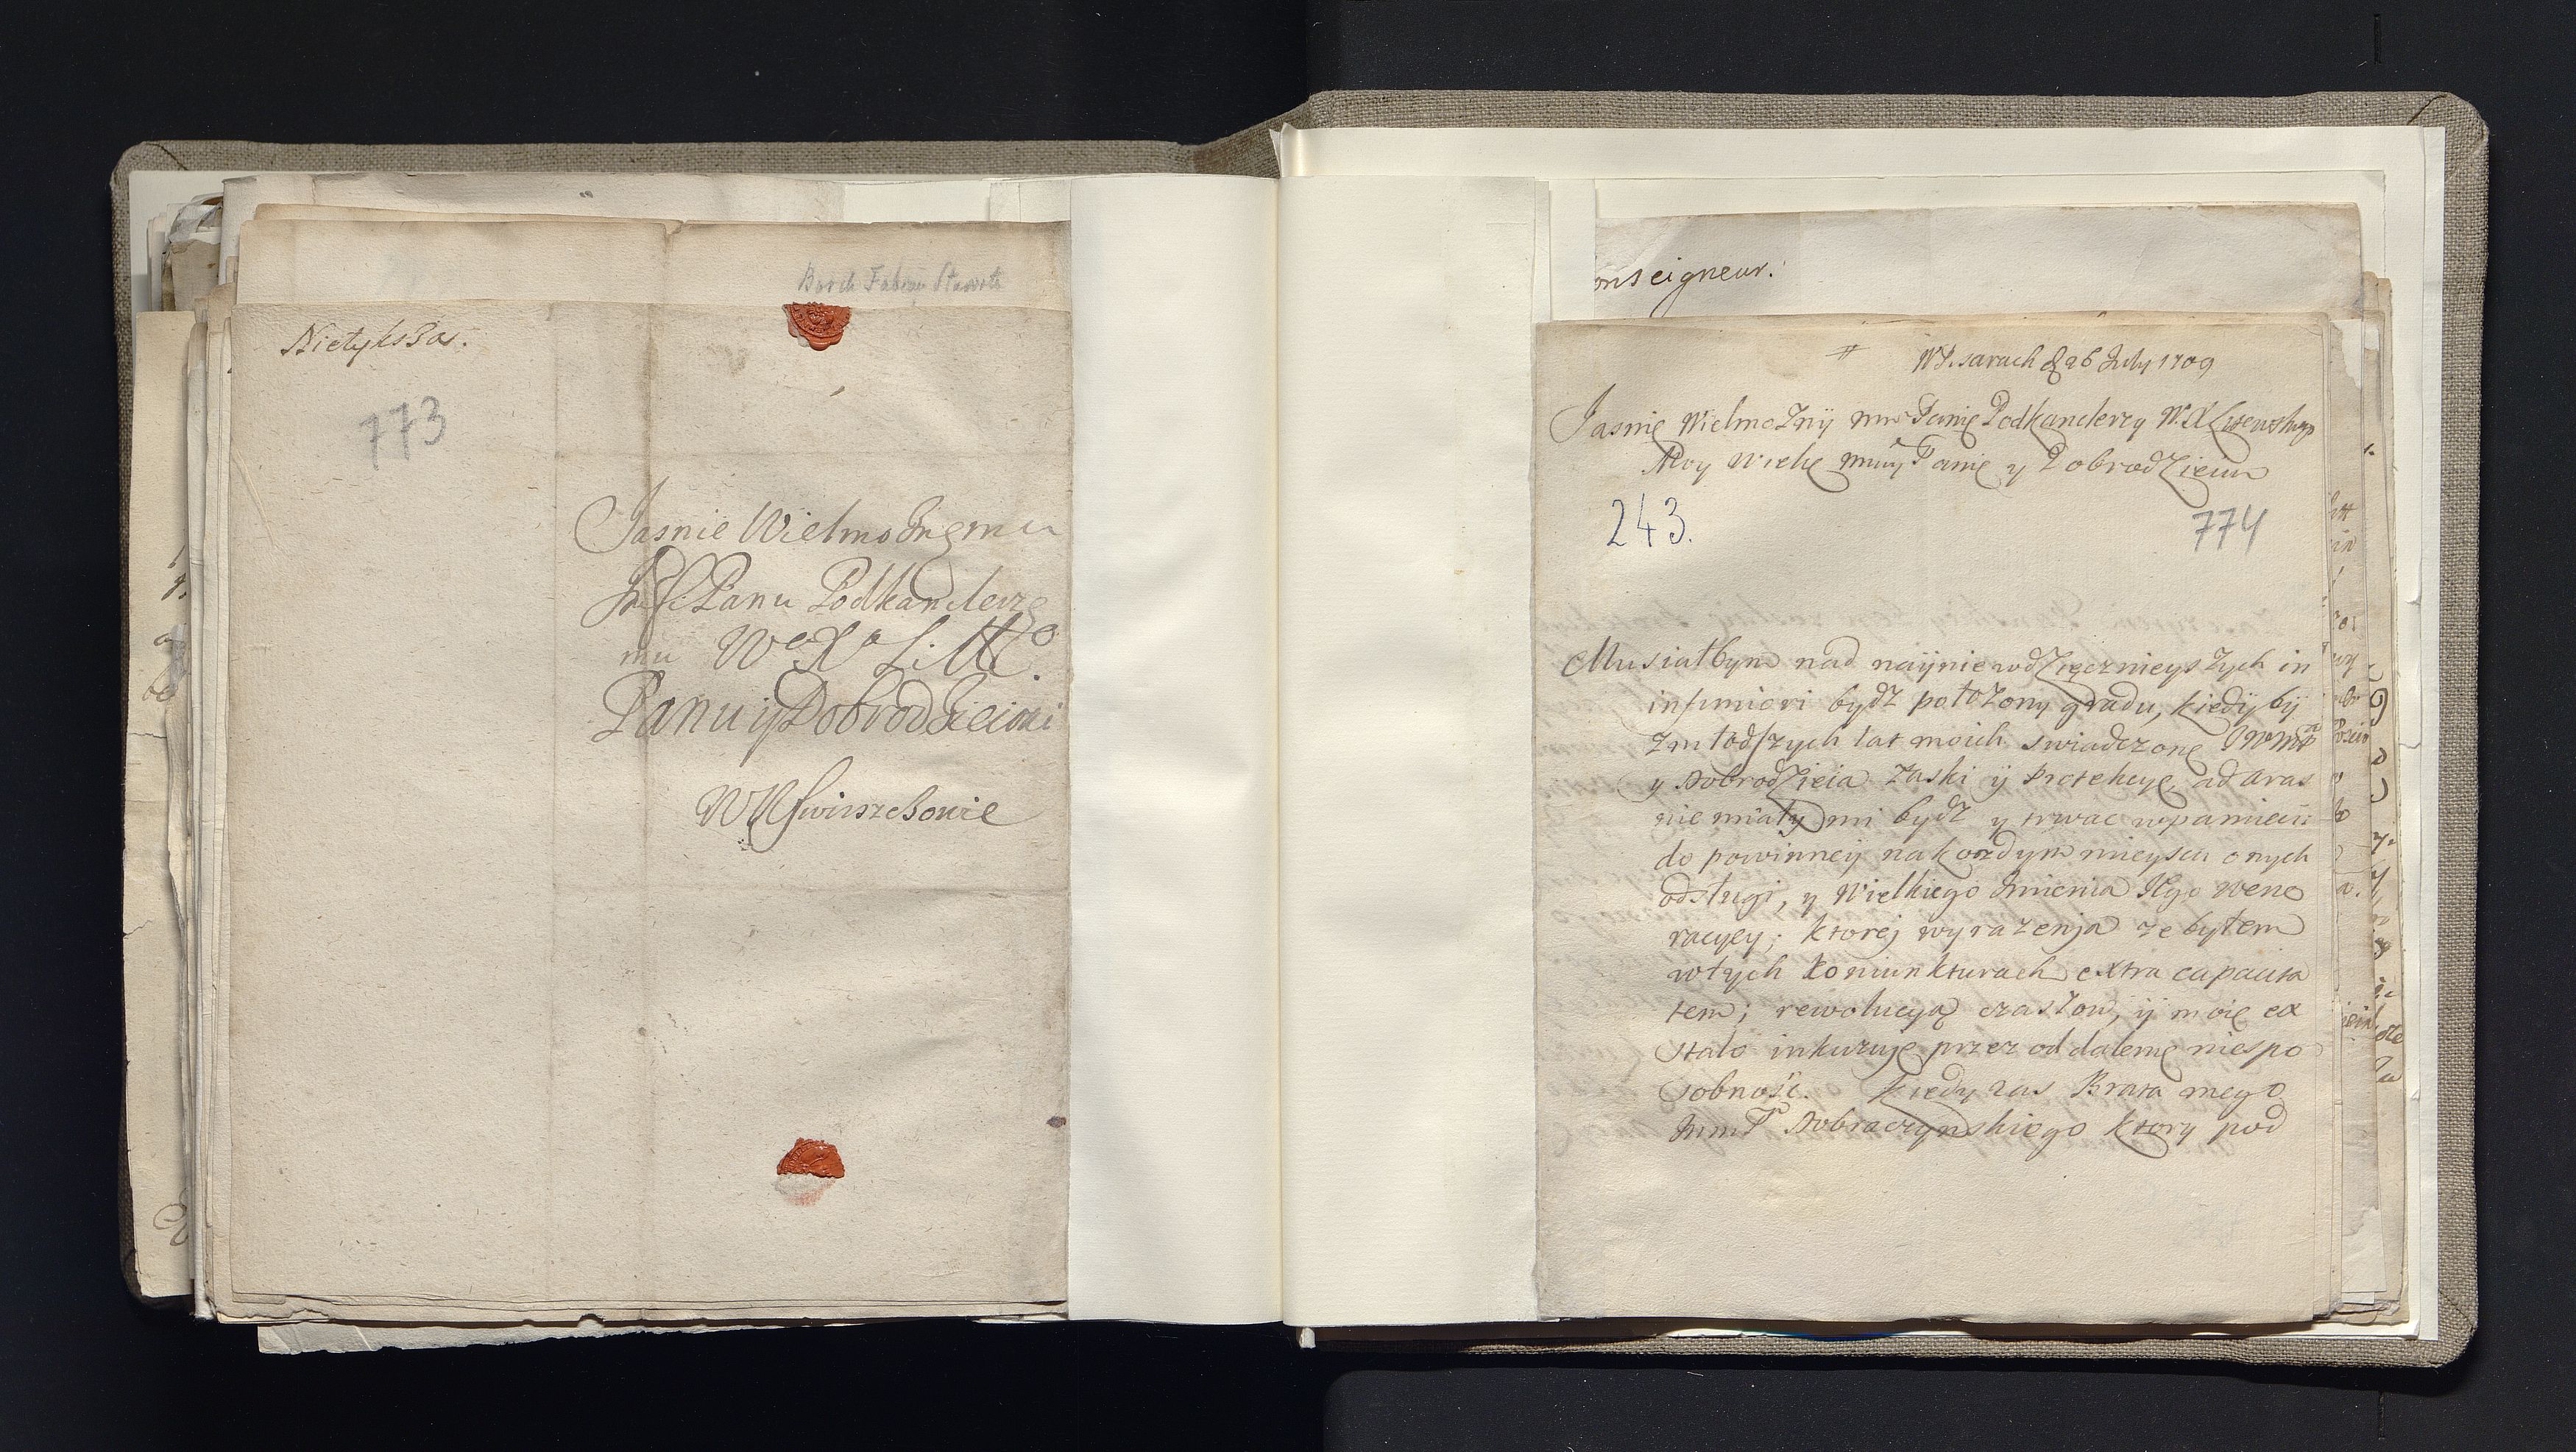 Borch Fabian Starosta
Nietyksza.
773
Jasnie Wielmożnemu
Panu Podkanclerze
mu W° X° Litt°
Panu y Dobrodzieiowi
onseigneur.
26 July 1709
Jasnie Wielmożnÿ Panie Podkanclerzy W. X Litewskiego
Moy Wielce Panie y Dobrodzieiu
243.
774
Musiałbym nad naÿniewdzięcznieyszych in
inferiori bydz położony gradu, kiedÿ bÿ
z młodszych lat moich swiadczone
y Dobrodzieia łaski ÿ Protekcye, ad aras
nie miały mi bydz y trwac w pamieci
do powinneÿ na kozdym mieyscu onych
odsługi, y Wielkiego Imienia Jego wene
racyey; ktorej wyrazenja ze byłem
w tych koniunkturach extra capacita
tem; rewolucyą czasow, ÿ moię ex
Stato inkuzuję przez oddalenie niespo
sobność. Kiedy zas Brata mego
Dobraczynskiego ktory pod